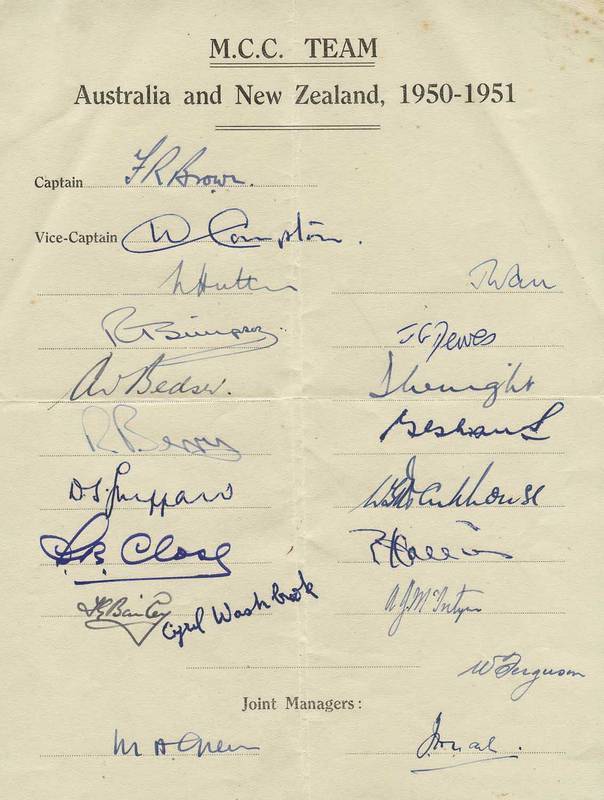 M.C.C. TEAM
Australia and New Zealand, 1950-1951
Captain F R Brown.
Vice-Captain D Compton.
L Hutton J Warr
R T Simpson J G Dewes
A V Bedser. D V P Wright
R. Berry G E S
D.S. Sheppard W G A Parkhouse
D.B. Close E Hollies
T E Bailey Cyril Washbrook A J McIntyre
W Ferguson
Joint Managers:
M A Green J. A. Nash.